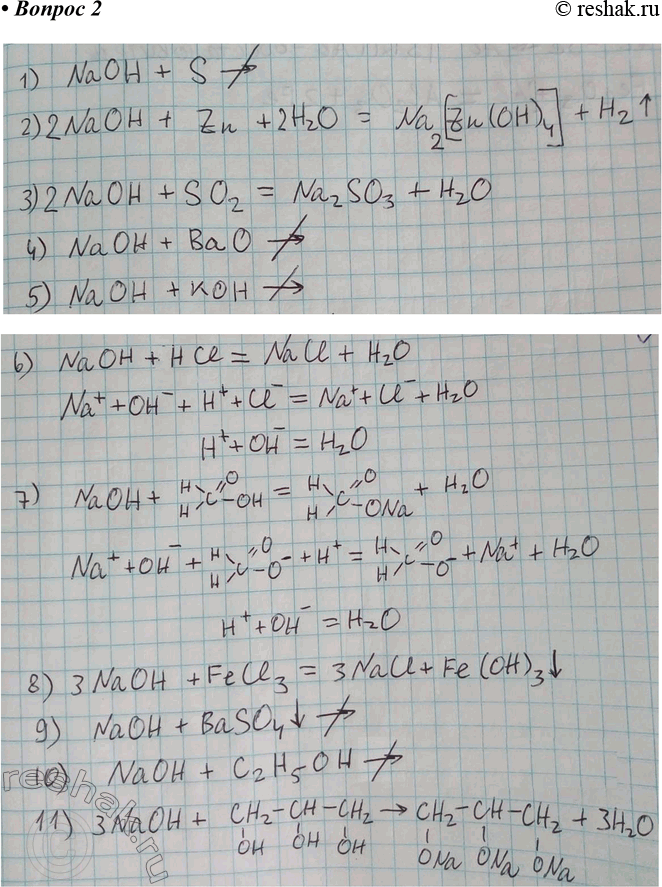 • Вопрос 2
© reshak.ru
1) NaOH + S ↛
2) 2NaOH + Zn + 2H₂O = Na₂[Zn(OH)₄] + H₂↑
3) 2NaOH + SO₂ = Na₂SO₃ + H₂O
4) NaOH + BaO ↛
5) NaOH + KOH ↛
6) NaOH + HCl = NaCl + H₂O
Na⁺ + OH⁻ + H⁺ + Cl⁻ = Na⁺ + Cl⁻ + H₂O
H⁺ + OH⁻ = H₂O
7) NaOH + H H > C =O –OH = H H > C =O –ONa + H₂O
Na⁺ + OH⁻ + H H > C =O –O⁻ + H⁺ = H H > C =O –O⁻ + Na⁺ + H₂O
H⁺ + OH⁻ = H₂O
8) 3NaOH + FeCl₃ = 3NaCl + Fe(OH)₃↓
9) NaOH + BaSO₄↓ ↛
10) NaOH + C₂H₅OH ↛
11) 3NaOH + CH₂–CH–CH₂ → CH₂–CH–CH₂ + 3H₂O
OH OH OH ONa ONa ONa
reshak.ru